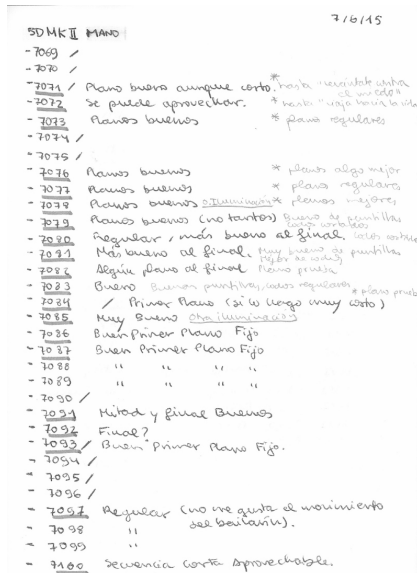 7/6/15
5D MK II MANO
- 7069 /
- 7070 /
- 7071 / Plano bueno aunque corto. * hasta
- 7072 Se puede aprovechar. * hasta "viaja hacia la
- 7073 Planos buenos * planos regulares
- 7074 /
- 7075 /
- 7076 Planos buenos * planos algo mejor
- 7077 Planos buenos * planos regulares
- 7078 Planos buenos o.iluminación * planos mejores
- 7079 Planos buenos (no tantos) Bueno de puntillas
- 7080 Regular, más bueno al final.
- 7081 Más bueno al final. Muy bueno puntillas
- 7082 Algún plano al final Plano prueba
- 7083 Bueno Buenos puntillas, codos regulares * plano
- 7084 / Primer Plano (si lo hago muy corto)
- 7085 Muy Bueno Otra iluminación
- 7086 Buen Primer Plano Fijo
- 7087 Buen Primer Plano Fijo
- 7088 " " " "
- 7089 " " " "
- 7090 /
- 7091 Mitad y final Buenos
- 7092 Final?
- 7093 / Buen Primer Plano Fijo.
- 7094 /
- 7095 /
- 7096 /
- 7097 Regular (no me gusta el movimiento
del bailarín).
- 7098 "
- 7099 "
- 7100 Secuencia corta Aprovechable.